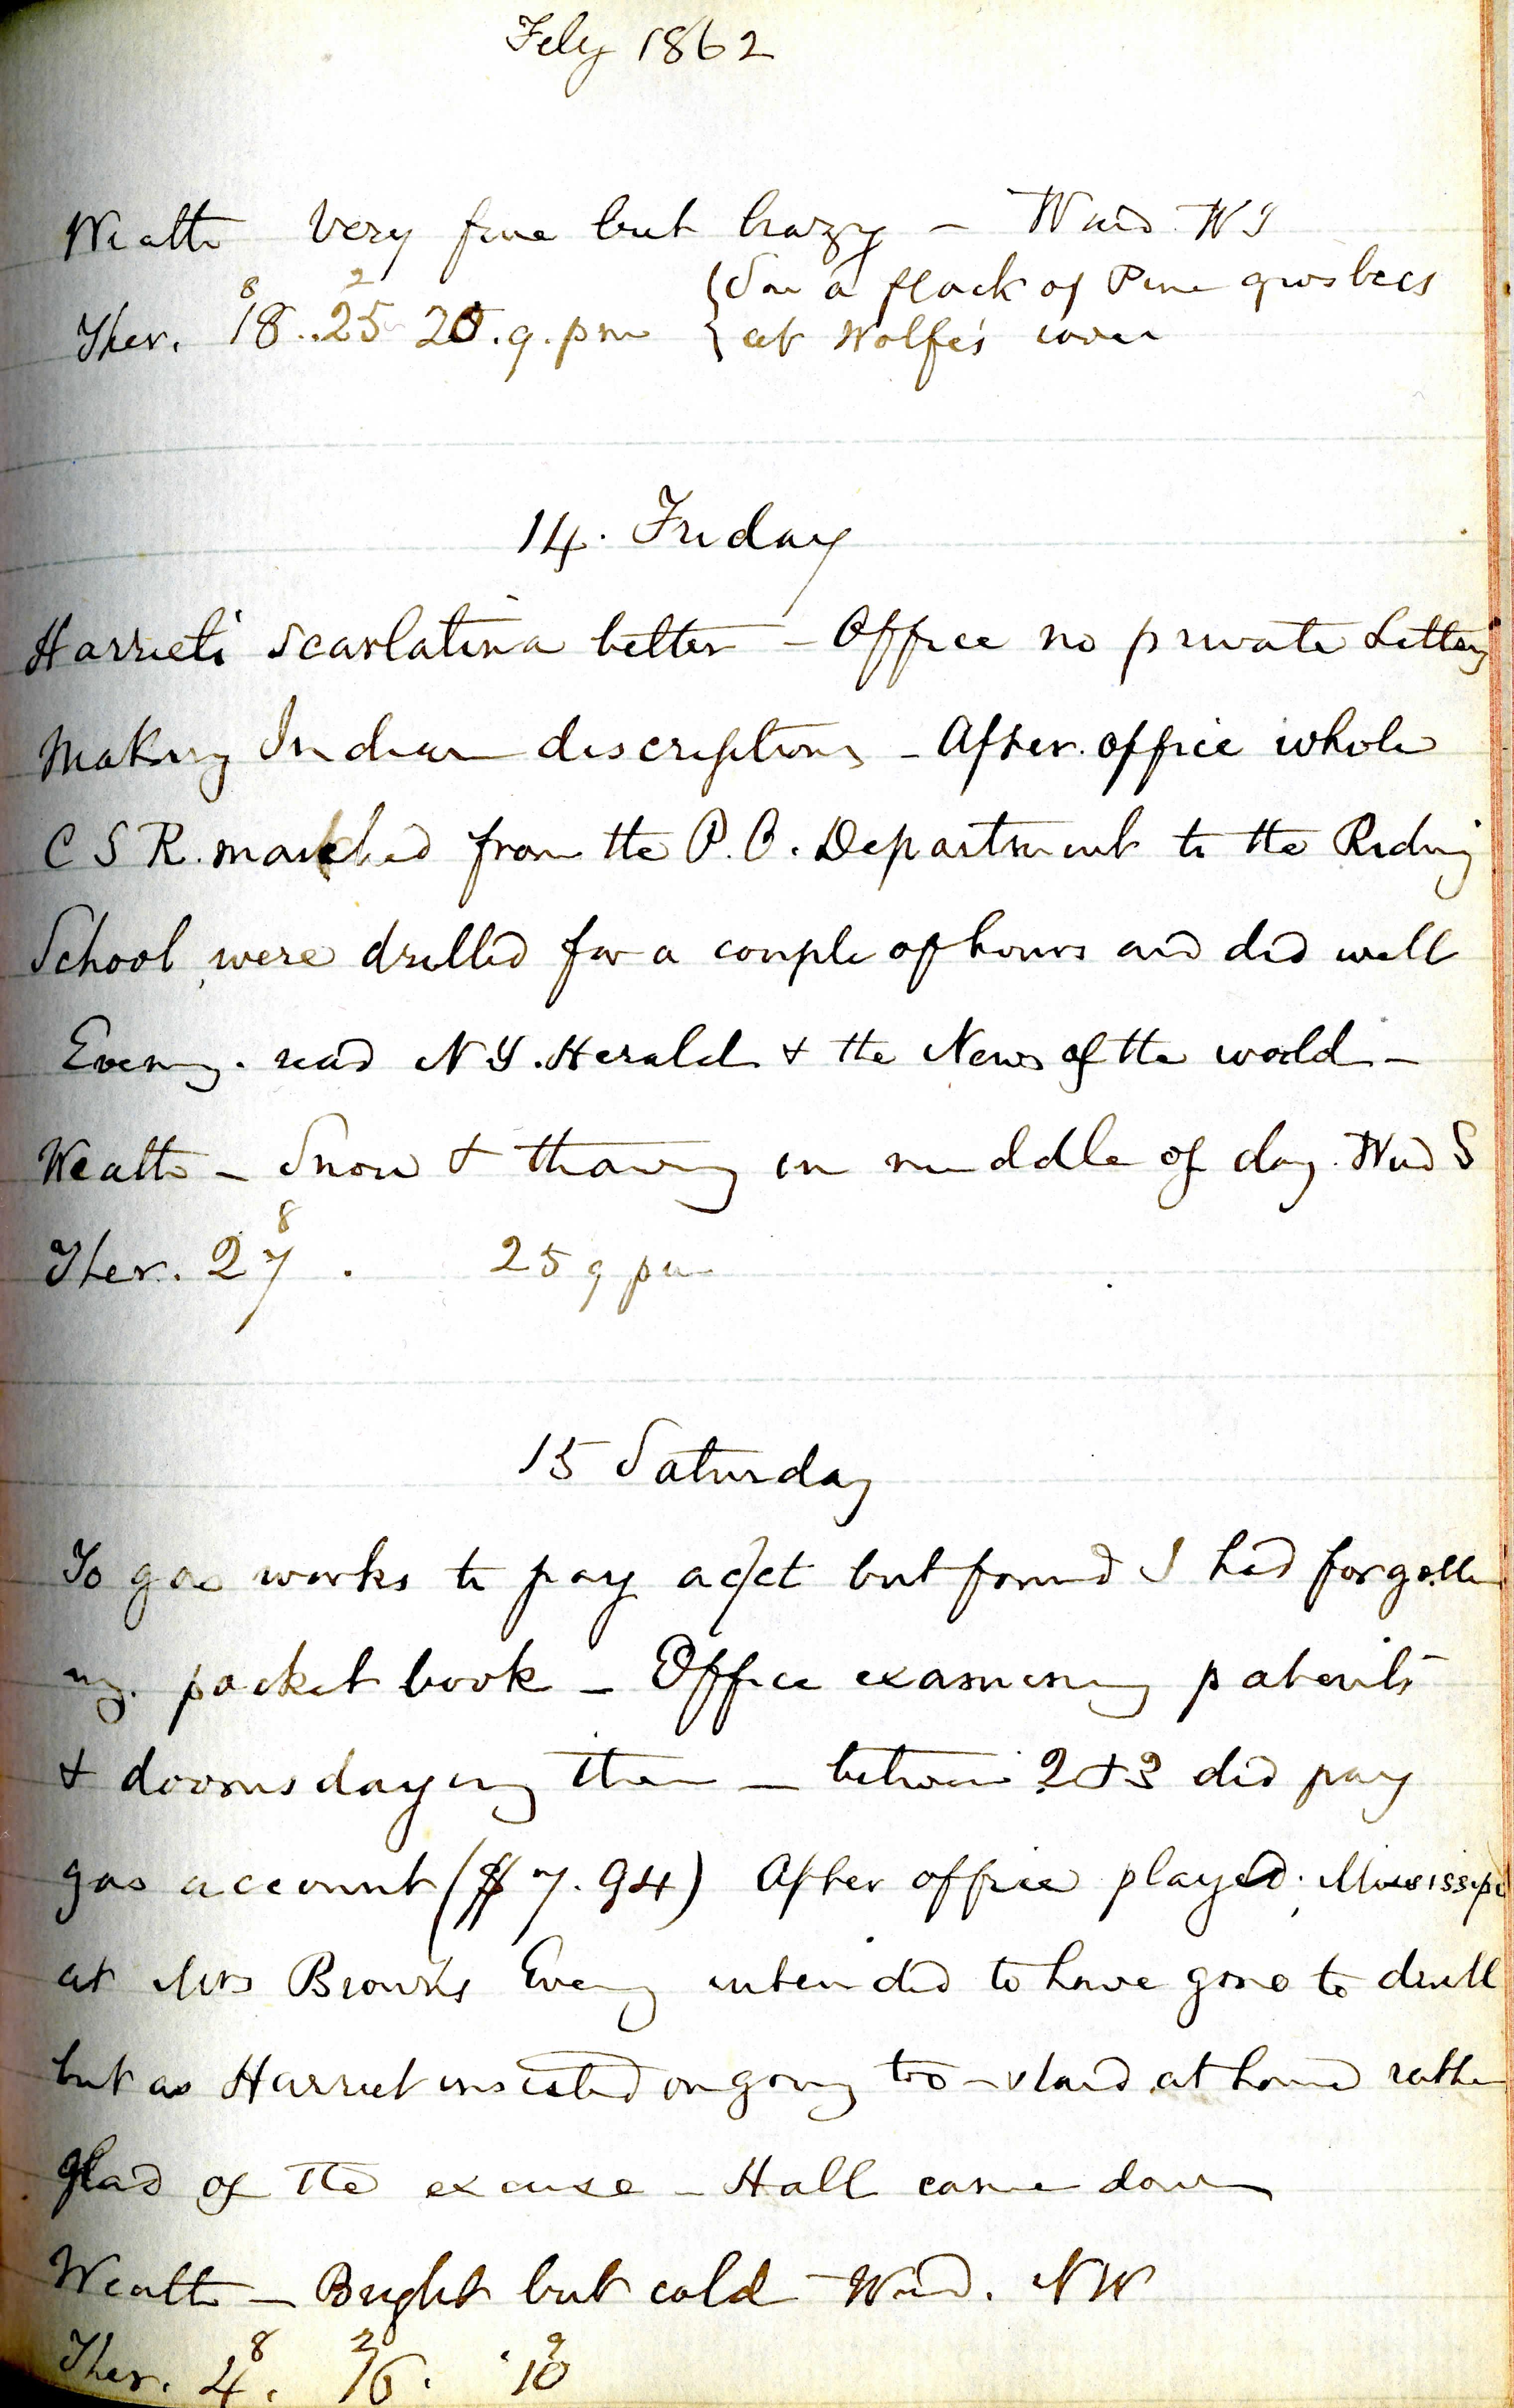 Feby 1862
Weath Very fine but hazy – Wind W
{Saw a flock of Pine grosbecs
Ther. 18 8 .. 25 2 20 . 9 . pm { at Wolfe's cove
14. Friday
Harriets scarlatina better – Office no private Letters
Making Indian descriptions – After office whole
C S R. marched from the P. O. Department to the Riding
School were drilled for a couple of hours and did well
Evening. read N Y. Herald & the News of the world –
Weath – Snow & thawing in middle of day. Wind S
Ther. 27 8 . 25 9 pm
15 Saturday
To gas works to pay ac/ct but found I had forgotten
my. pocket book – Office examining patents
& doomsdaying them – between 2 & 3 did pay
gas account ($ 7.94) After office played
at Mrs Browns Eveng intended to have gone to drill
but as Harriet insisted on going too – staid at home rather
glad of the excuse – Hall came down
Weath – Bright but cold – Wind. NW
Ther. 4 8 . 16 2 . 10 9